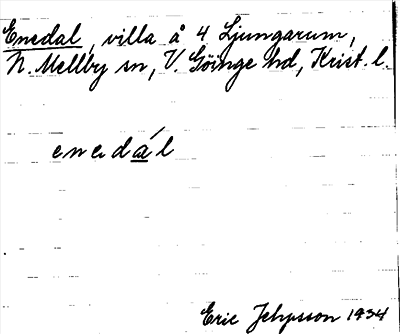 Enedal, villa å 4 Ljungarum,
N. Mellby sn, V. Göinge hd, Krist. l.
enedál
Eric Jehpsson 1934